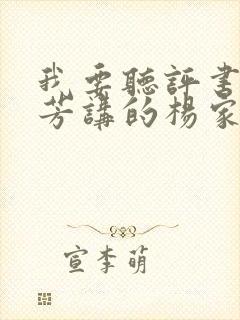 我要聽評書
芳講的楊家
宣李萌